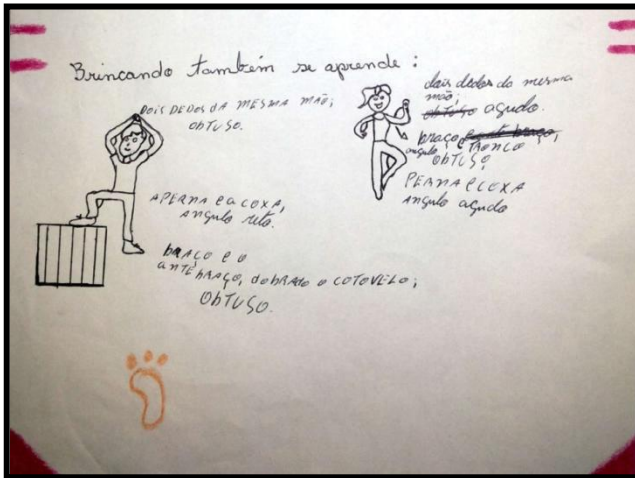 Brincando também se aprende:
DOIS DEDOS DA MESMA MÃO;
OBTUSO.
A PERNA E A COXA,
ANGULO reto.
BRAÇO E O
ANTE BRAÇO, dobRADO O COTOVELO;
OBTUSO.
dois dedos da mesma
mão;
obtuso agudo.
braço e
angulo TRONCO
OBTUSO;
PERNA E COXA
Angulo agudo